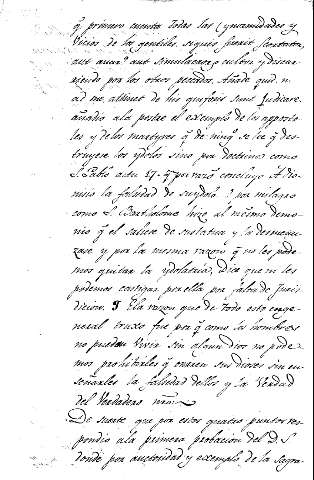 q̃ primero cuenta todas las (ynanidades y
vicios de los gentiles, seguis
aut aun aut simulacrorum cultura y discu
riendo por los otros pecados. Añade quid.n.
ad me attinet de his qui foris sunt Judicare.
añadio ala postre el exemplo de los apposto
les y delos martyres q̃ de ning.º se lee q̃ des
truyese los ydolos sino por doctrina como
S. Pablo actu 17. q̃ por razõ conclujo A dio
nisio la falsedad de su ydolo. o por milagro
como S. Bartholome hizo al mismo demo
nio q̃ el saliese de su statua y la desmenu
zase y por la misma razon q̃ no les pode
mos quitar la ydolatria, Dice que ni les
podemos castigar por ella por falta de Juris
dicion. ¶ Ela razon que de todo esto en ge
neral truxo fue por q̃ como los hombres
no puedan vivir sin algun dios no pode
mos prohibirles q̃ onrren sus dioses sin en
señarles la falsedad dellos y la verdad
del Verdadero nrõ.
De suerte que por estos quatro puntos res
pondio ala primera probacion del D. S
donde por auctoridad y exemplo de la sagra